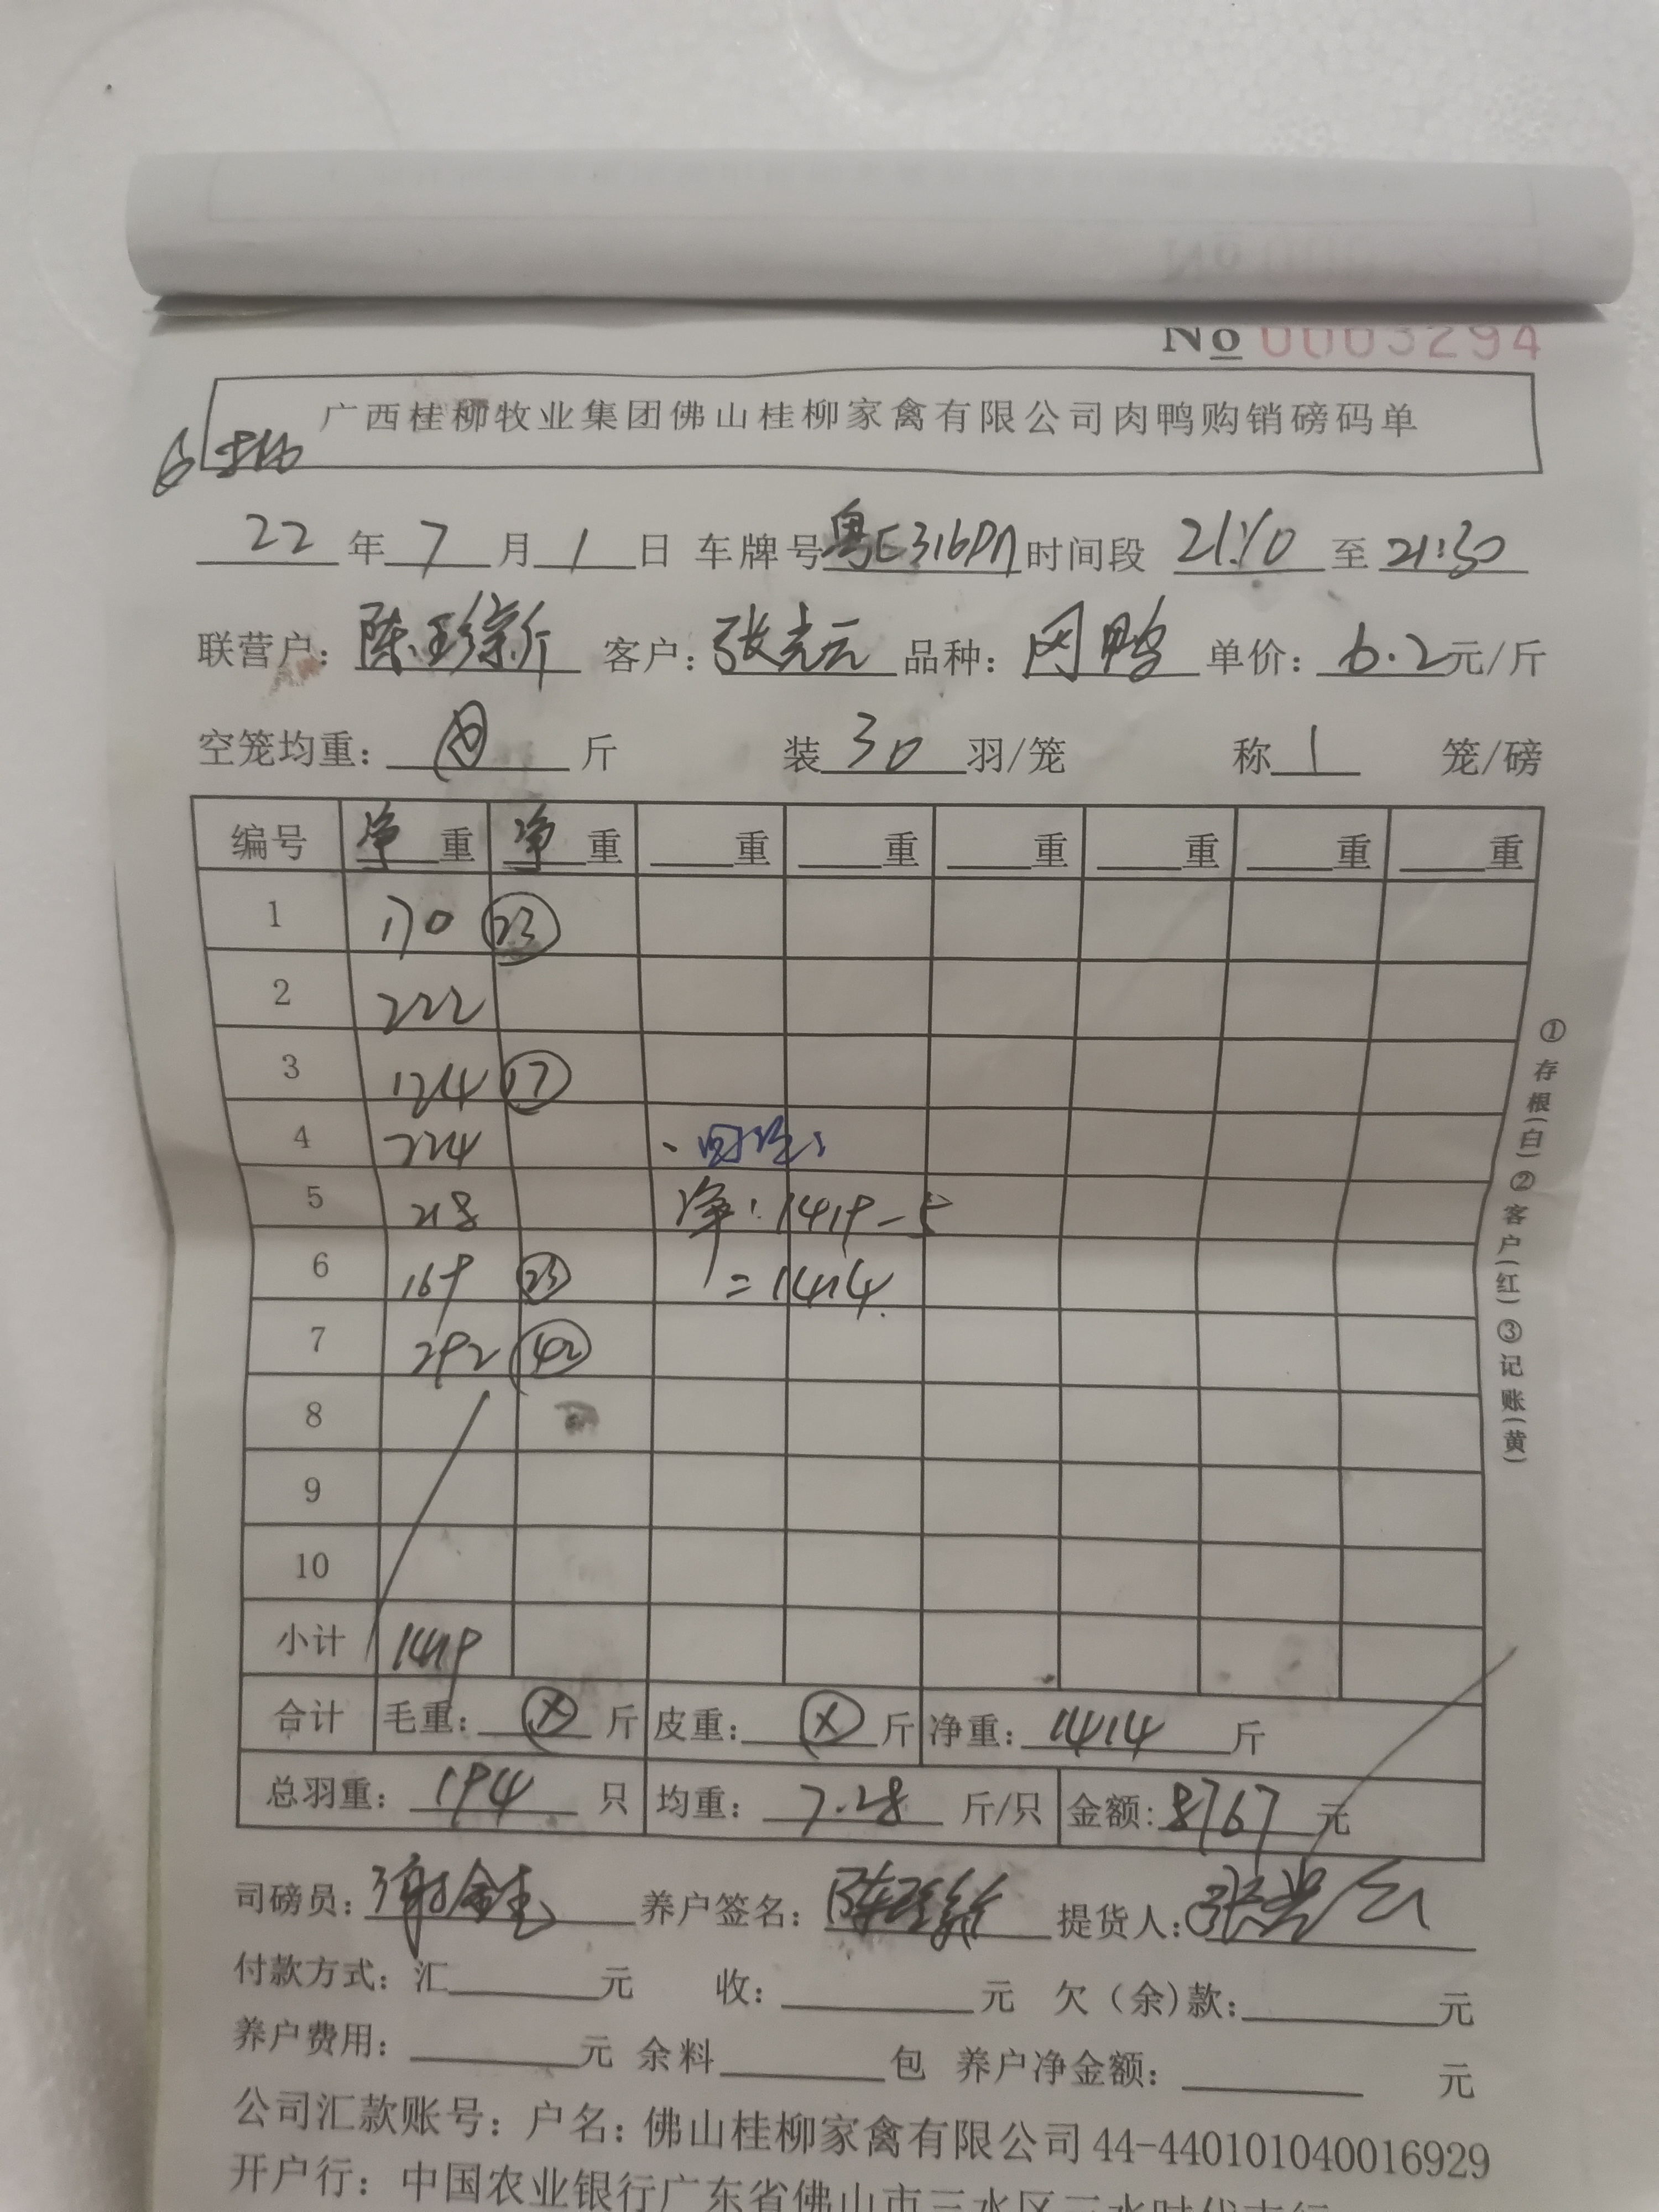 No 0003294
广西桂柳牧业集团佛山桂柳家禽有限公司肉鸭购销磅码单
22年7月1日 车牌号粤E316PM时间段 21:10 至 21:30
联营户: 陈 客户: 张光云 品种: 网鸭 单价: 6.2元/斤
空笼均重: 斤 装30羽/笼 称1 笼/磅
编号 净重 净重 重 重 重 重 重 重
1 170 23
2 222
3 124 17
4 224
5 218 净:1419-5
6 169 23 =1414
7 292 42
8
9
10
小计 1419
合计 毛重: X 斤 皮重: X 斤 净重: 1414 斤
总羽重: 194 只 均重: 7.28 斤/只 金额: 8767 元
司磅员: 谢金 养户签名: 陈 提货人: 张光云
付款方式: 汇 元 收: 元 欠(余)款: 元
养户费用: 元 余料 包 养户净金额: 元
公司汇款账号: 户名: 佛山桂柳家禽有限公司 44-440101040016929
开户行: 中国农业银行广东省佛山市三水区三水时代支行
①存根(白)②客户(红)③记账(黄)